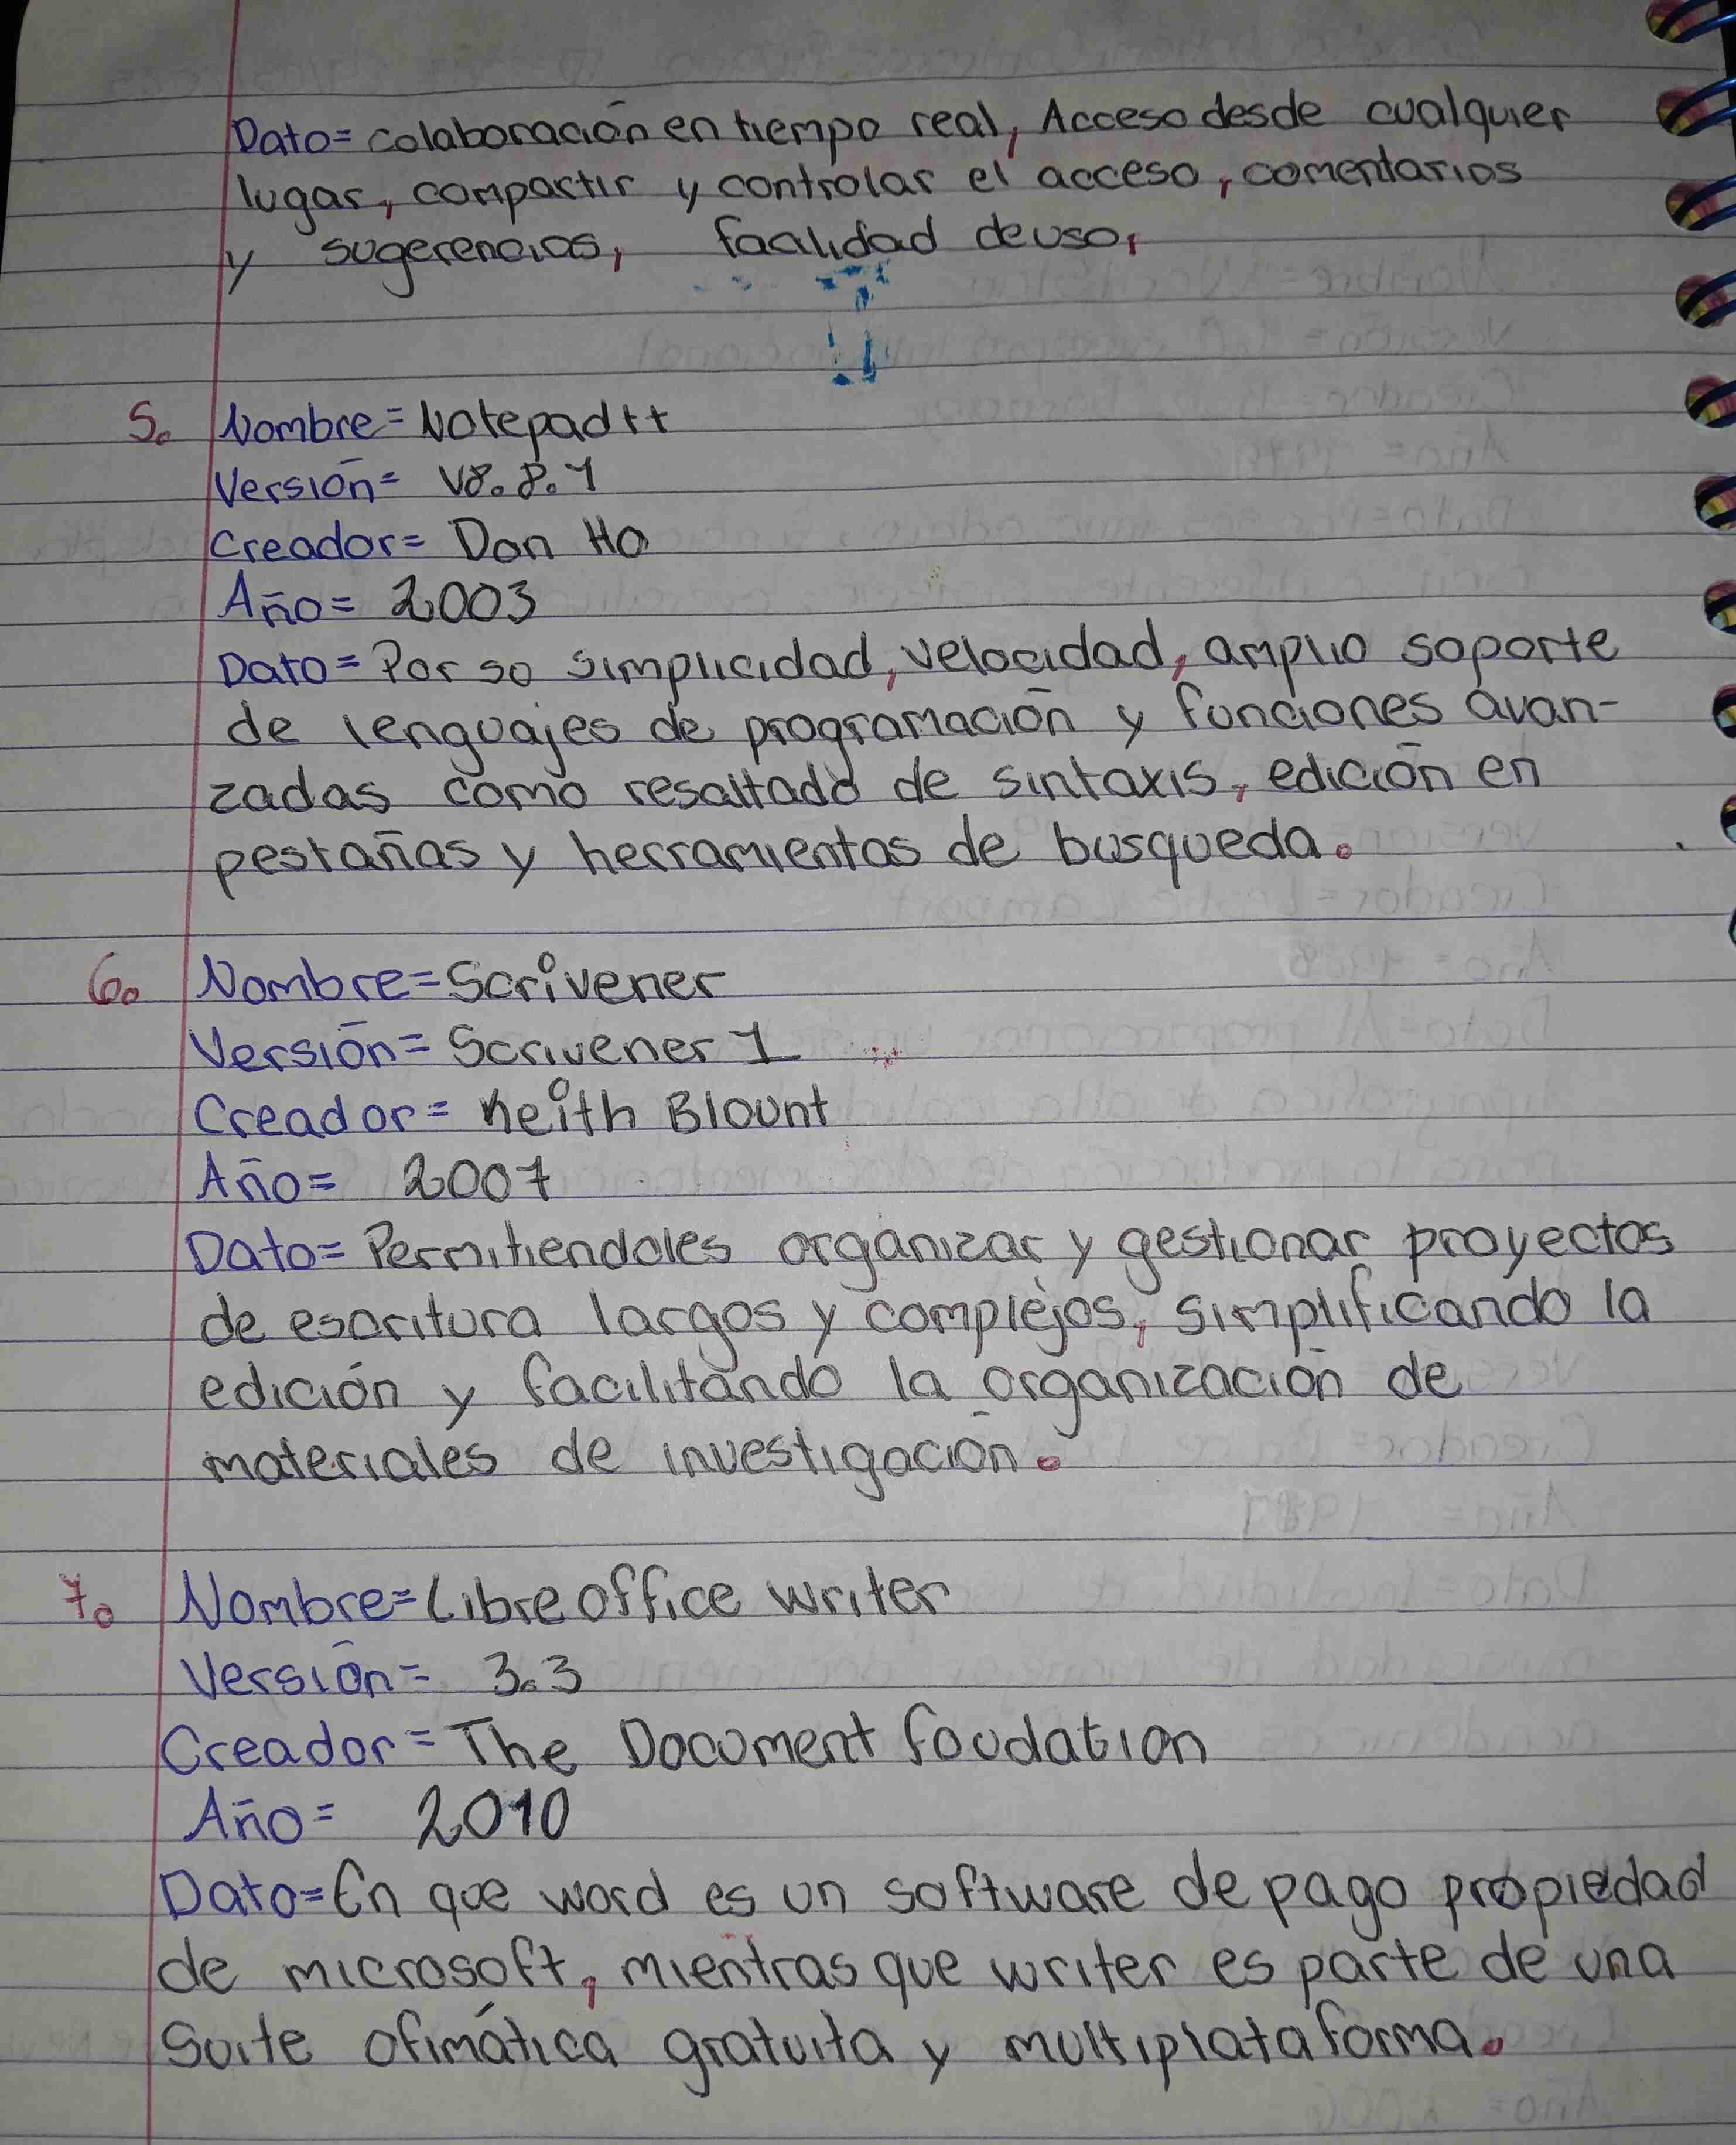 Dato= colaboración en tiempo real, Acceso desde cualquier
lugar, compartir y controlar el acceso, comentarios
y sugerencias, facilidad de uso,
5. Nombre= Notepad++
Versión= v8.8.1
Creador= Don Ho
Año= 2003
Dato= Por so simplicidad, velocidad, amplio soporte
de lenguajes de programación y funciones avan-
zadas como resaltado de sintaxis, edición en
pestañas y herramientas de busqueda.
6. Nombre= Scrivener
Versión= Scrivener 1
Creador= Keith Blount
Año= 2007
Dato= Permitiendoles organizar y gestionar proyectos
de escritura largos y complejos, simplificando la
edición y facilitando la organización de
materiales de investigación.
7. Nombre= Libre office writer
Versión= 3.3
Creador= The Document foudation
Año= 2010
Dato= En que word es un software de pago propiedad
de microsoft, mientras que writer es parte de una
Suite ofimática gratuita y multiplataforma.